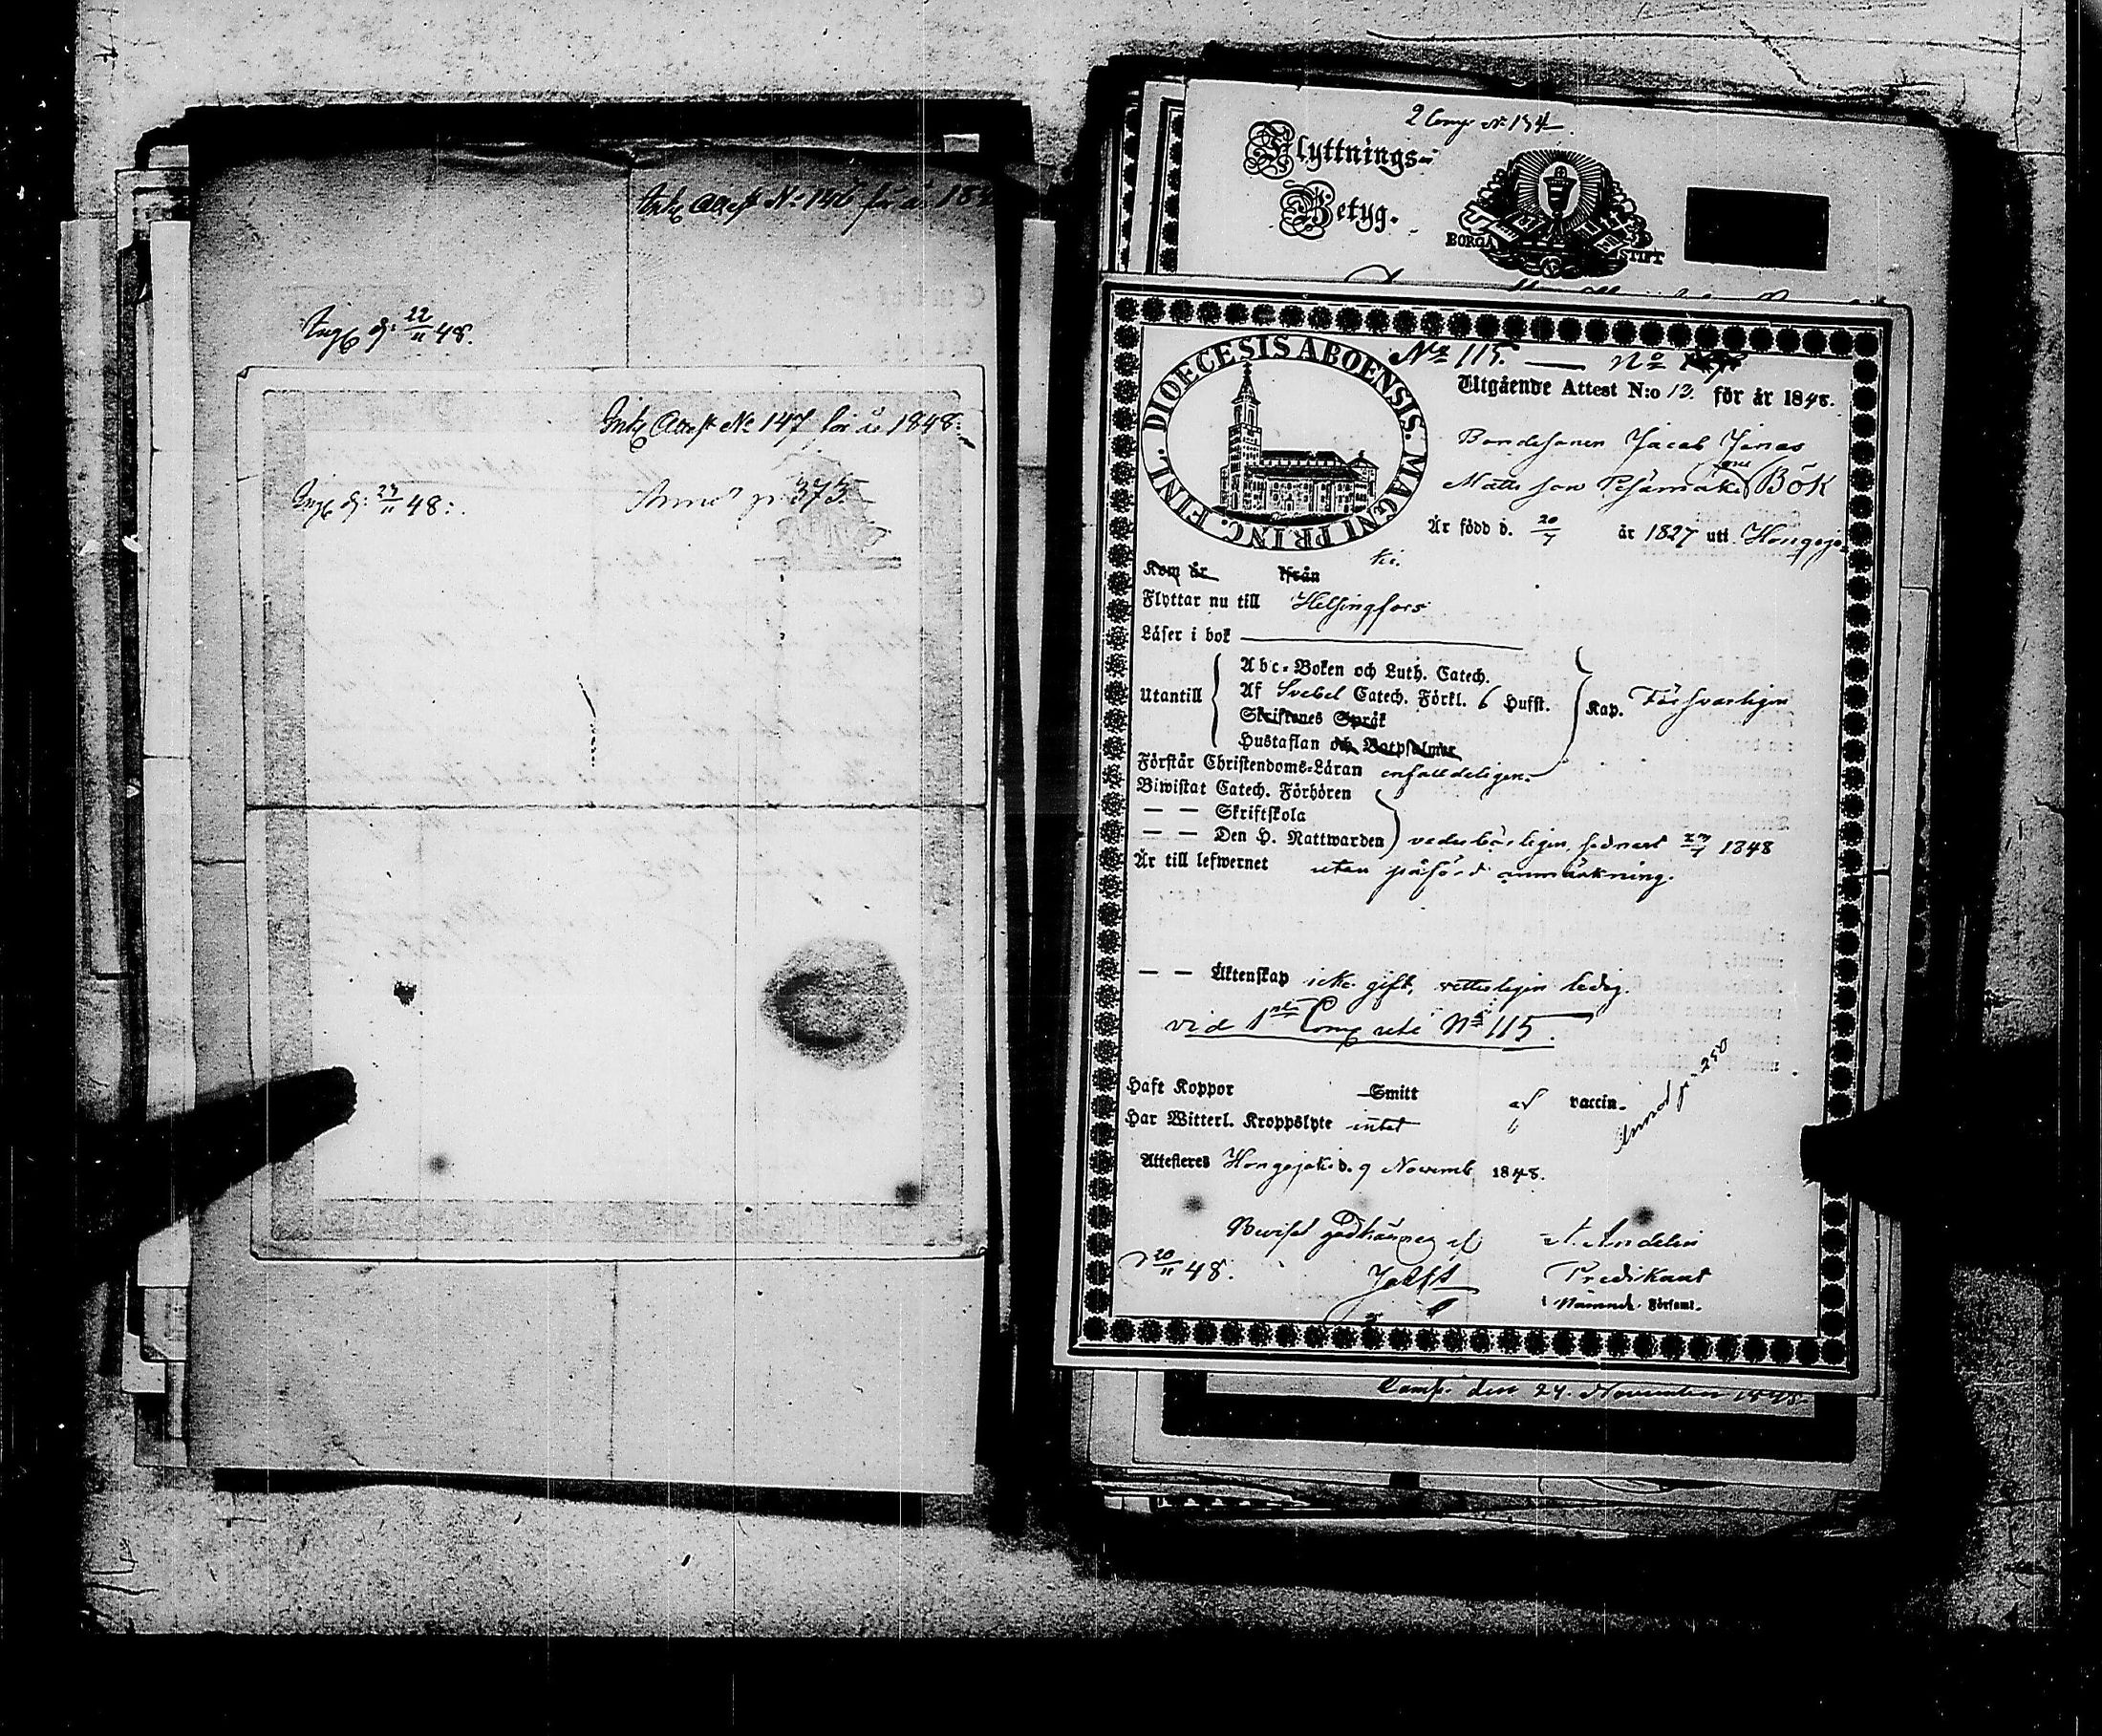 Ink. Attest No 146 för år 184
Ingk. d: 22/11 48.
Ink. Attest No 147 för år 1848:
Ingk. d: 27/11 48:
Annot p. 373
2 Comp. No 134
Flyttnings-
Betyg.
BORGÅ STIFT
DIOECESIS ABOENSIS. MAGNI PRINC. FINL.
No 115. — No
Utgående Attest N:o 13. för år 1848.
Bondesonen Jacob Jonas
Matts son Pesämäki nu Bök
Är född d. 20/7 år 1827 uti Hongojo-
ki.
Kom år ifrån
Flyttar nu till Helsingfors
Läser i bok
Utantill
Abc-Boken och Luth. Catech.
Af Svebel Catech. Förkl. 6 Hufst. Kap. Försvarligen
Skriftenes Språk
Hustaflan och Botpsalmer
Förstår Christendoms-Läran enfalldeligen.
Biwistat Catech. Förhören
— — Skriftskola
— — Den H. Nattwarden vederbörligen, sednast 1848
Är till lefwernet utan påförd anmärkning.
— — Äktenskap icke gift, vetterligen ledig.
vid 1sta Comp. rote No 115.
Haft Koppor Smitt af vaccin.
Annot p. 250
Har Witterl. Kroppslyte intet
Attesteras Hongojoki d. 9 Novemb 1848.
Beviset godkännes af A. Andelin
d 20/11 48. Predikant
i Nämnde Församl.
Camp. den 24. November 1848.